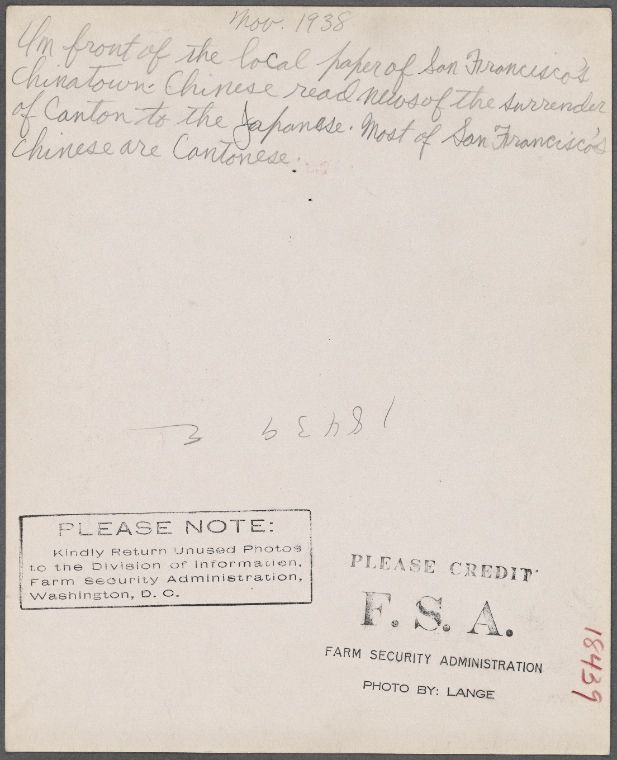 Nov. 1938
In front of the local paper of San Francisco's
Chinatown. Chinese read news of the surrender
of Canton to the Japanese. Most of San Francisco's
Chinese are Cantonese.
18439 E
PLEASE NOTE:
Kindly Return Unused Photos
to the Division of Information,
Farm Security Administration,
Washington, D. C.
PLEASE CREDIT
F. S. A.
FARM SECURITY ADMINISTRATION
PHOTO BY: LANGE
18439